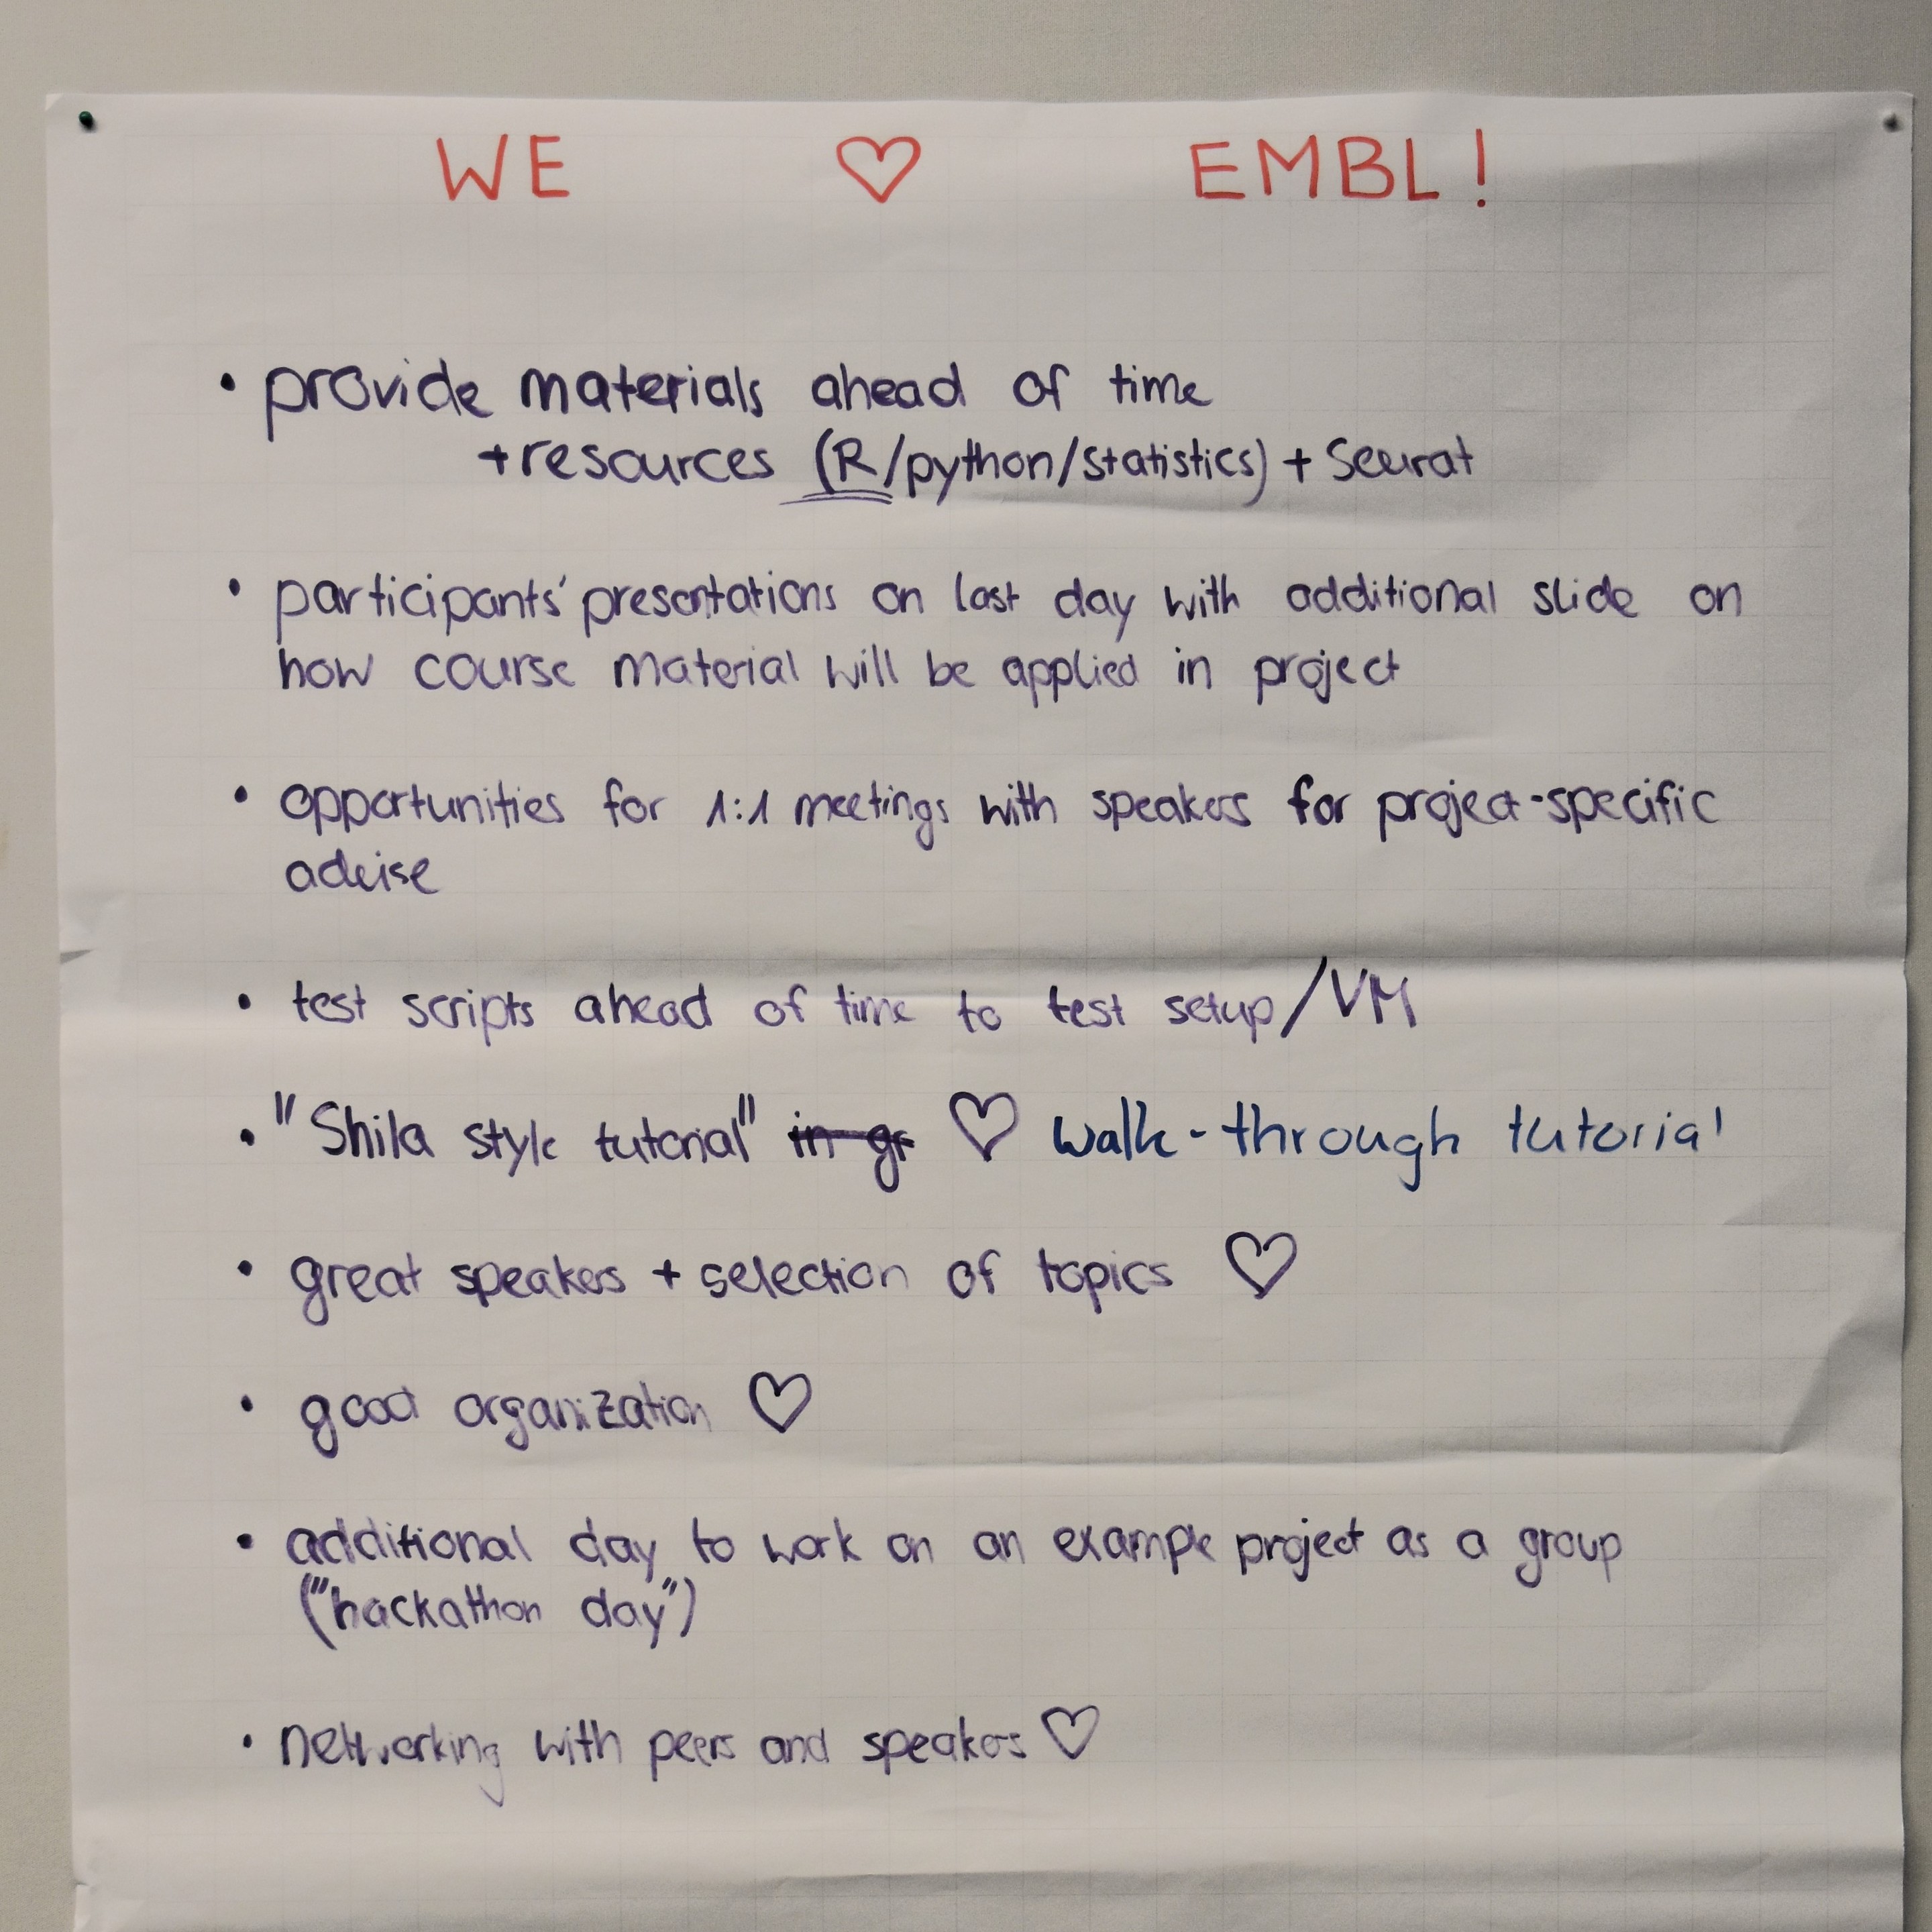 WE ♡ EMBL!
• provide materials ahead of time
+resources (R/python/statistics) + Seurat
• participants' presentations on last day with additional slide on
how course material will be applied in project
• opportunities for 1:1 meetings with speakers for project-specific
advise
• test scripts ahead of time to test setup/VM
• "Shila style tutorial" in gr ♡ walk-through tutorial
• great speakers + selection of topics ♡
• good organization ♡
• additional day to work on an example project as a group
("hackathon day")
• networking with peers and speakers ♡